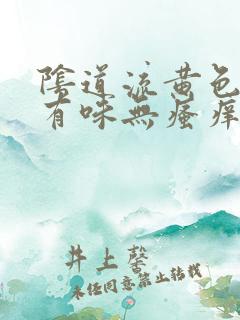 陰道流黄色
有味無瘙痒
井上馨
未经同意禁止转载